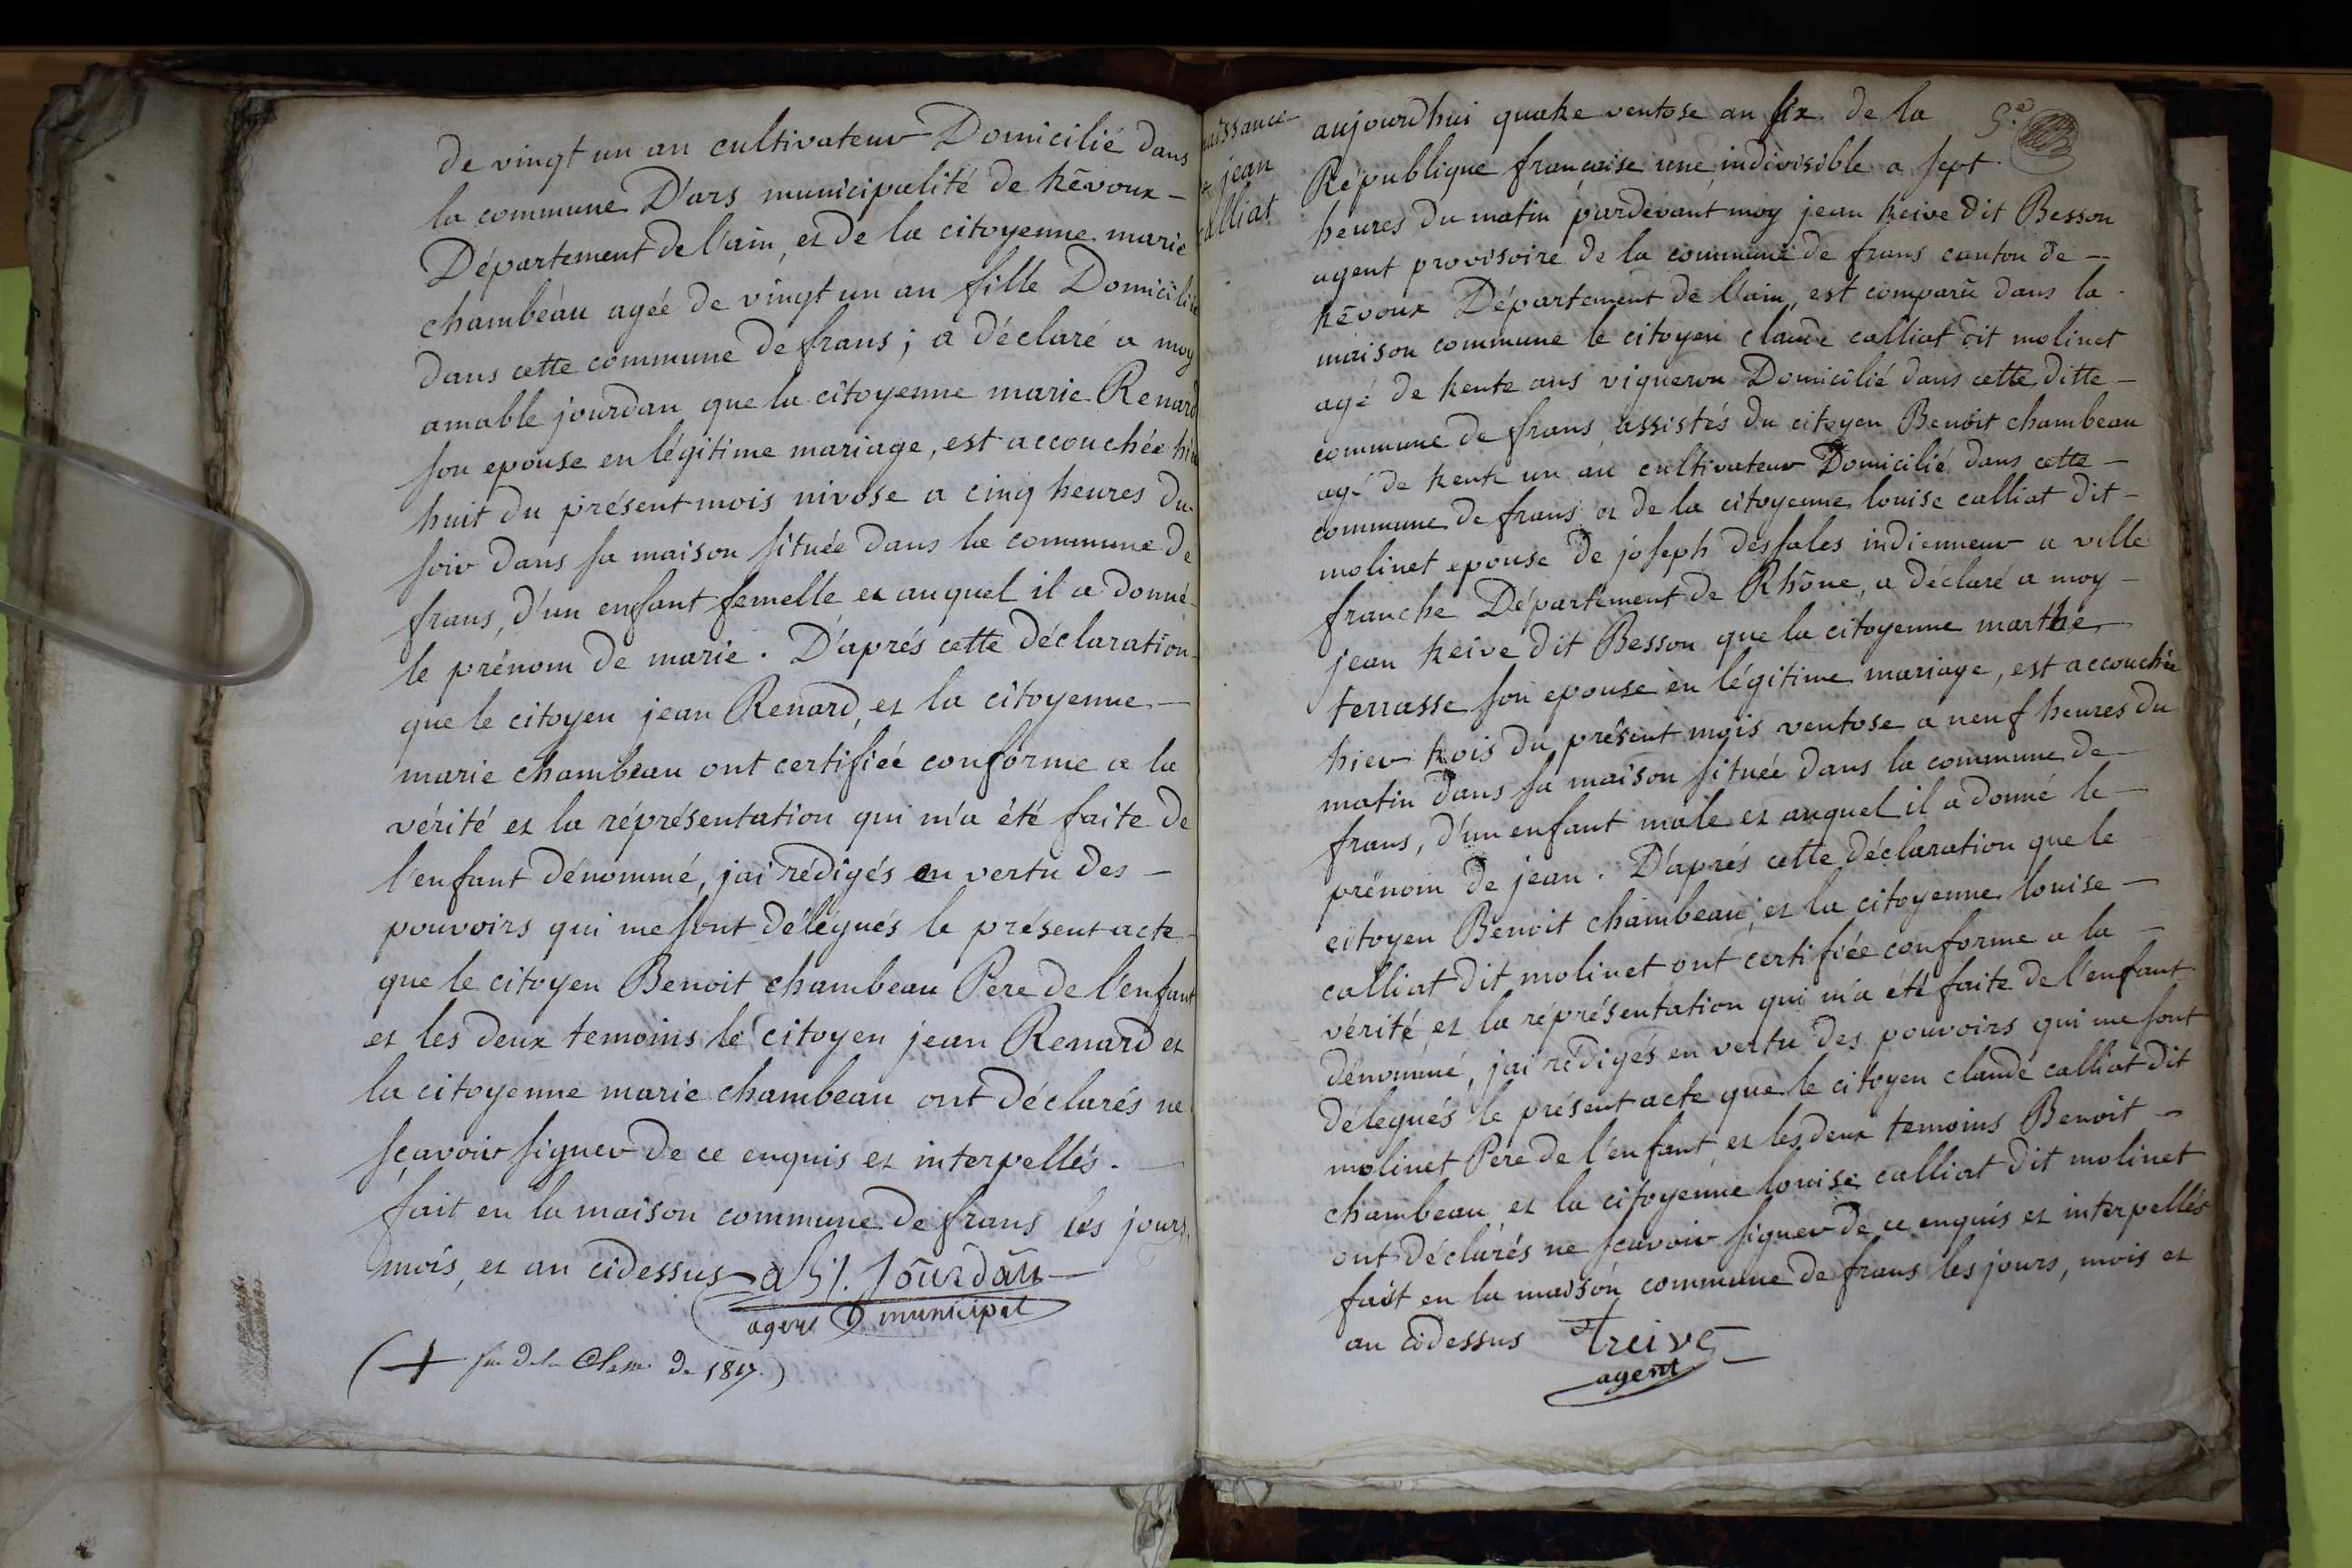 de vingt un an cultivateur Domicilié dans
la commune D'ars municipalité de trévoux –
Département de l'ain, et de la citoyenne marie
chambeau agée de vingt un an fille Domicilié
dans cette commune de frans ; a déclaré a moy
amable jourdan que la citoyenne marie Renard
son epouse en légitime mariage, est accouchée hier
huit du présent mois nivose a cinq heures du
soir dans sa maison située dans la commune de
frans, d'un enfant femelle et auquel il a donné
le prénom de marie. D'aprés cette déclaration
que le citoyen jean Renard, et la citoyenne –
marie chambeau ont certifiée conforme a la
vérité et la réprésentation qui m'a été faite de
l'enfant dénommé, jai rédigés en vertu des –
pouvoirs qui me sont délégués le présent acte
que le citoyen Benoit chambeau Pere de l'enfant
et les deux temoins le citoyen jean Renard et
la citoyenne marie chambeau ont déclarés ne
sçavoir signer de ce enquis et interpellés. –
fait en la maison commune de frans les jours,
mois, et an cidessus
Jourdan
agent municipal
de la Classe de 1817.)
naissance
jean
calliat
5.e
aujourdhui quatre ventose an six de la
République française une, indivisible a sept
heures du matin pardevant moy jean treive dit Besson
agent provisoire de la commune de frans canton de –
trévoux Département de l'ain, est comparu dans la
maison commune le citoyen claude calliat dit molinet
agé de trente ans vigneron Domicilié dans cette ditte –
commune de frans, assistés du citoyen Benoit chambeau
agé de trente un an cultivateur Domicilié dans cette –
commune de frans et de la citoyenne louise calliat dit –
molinet epouse de joseph desfales indienneur a ville
franche Département de Rhône, a déclaré a moy –
jean treive dit Besson que la citoyenne marthe
terrasse son epouse en légitime mariage, est accouchée
hier trois du présent mois ventose a neuf heures du
matin dans sa maison située dans la commune de –
frans, d'un enfant male et auquel il a donné le –
prénom de jean. D'aprés cette déclaration que le
citoyen Benoit chambeau, et la citoyenne louise –
calliat dit molinet ont certifiée conforme a la –
vérité et la réprésentation qui m'a été faite de l'enfant
dénommé, jai rédigés en vertu des pouvoirs qui me sont
délegués le présent acte que le citoyen claude calliat dit
molinet Pere de l'enfant, et les deux temoins Benoit –
chambeau et la citoyenne louise calliat dit molinet
ont déclarés ne sçavoir signer de ce enquis et interpellés
fait en la maison commune de frans les jours, mois et
an cidessus treive
agent